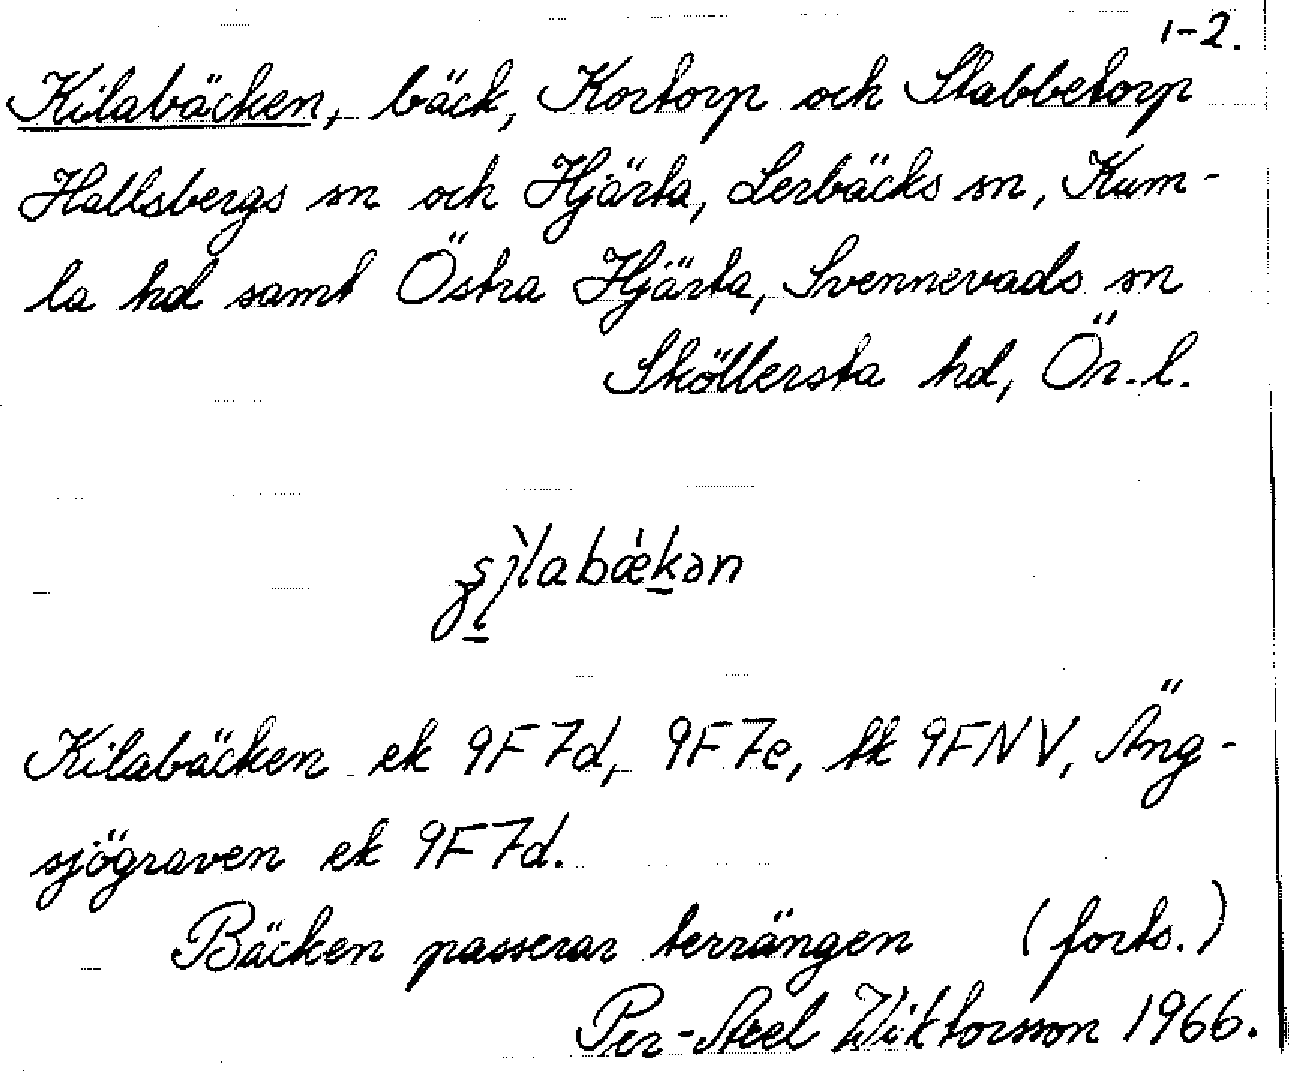 1-2.
Kilabäcken, bäck, Kortorp och Stabbetorp
Hallsbergs sn och Hjärta, Lerbäcks sn, Kum-
la hd samt Östra Hjärta, Svennevads sn
Sköllersta hd, Ör. l.
Kilabäcken ek 9F7d, 9F7e, tk 9FNV, Äng-
sjögraven ek 9F7d.
Bäcken passerar terrängen (forts.)
Per-Axel Wiktorsson 1966.